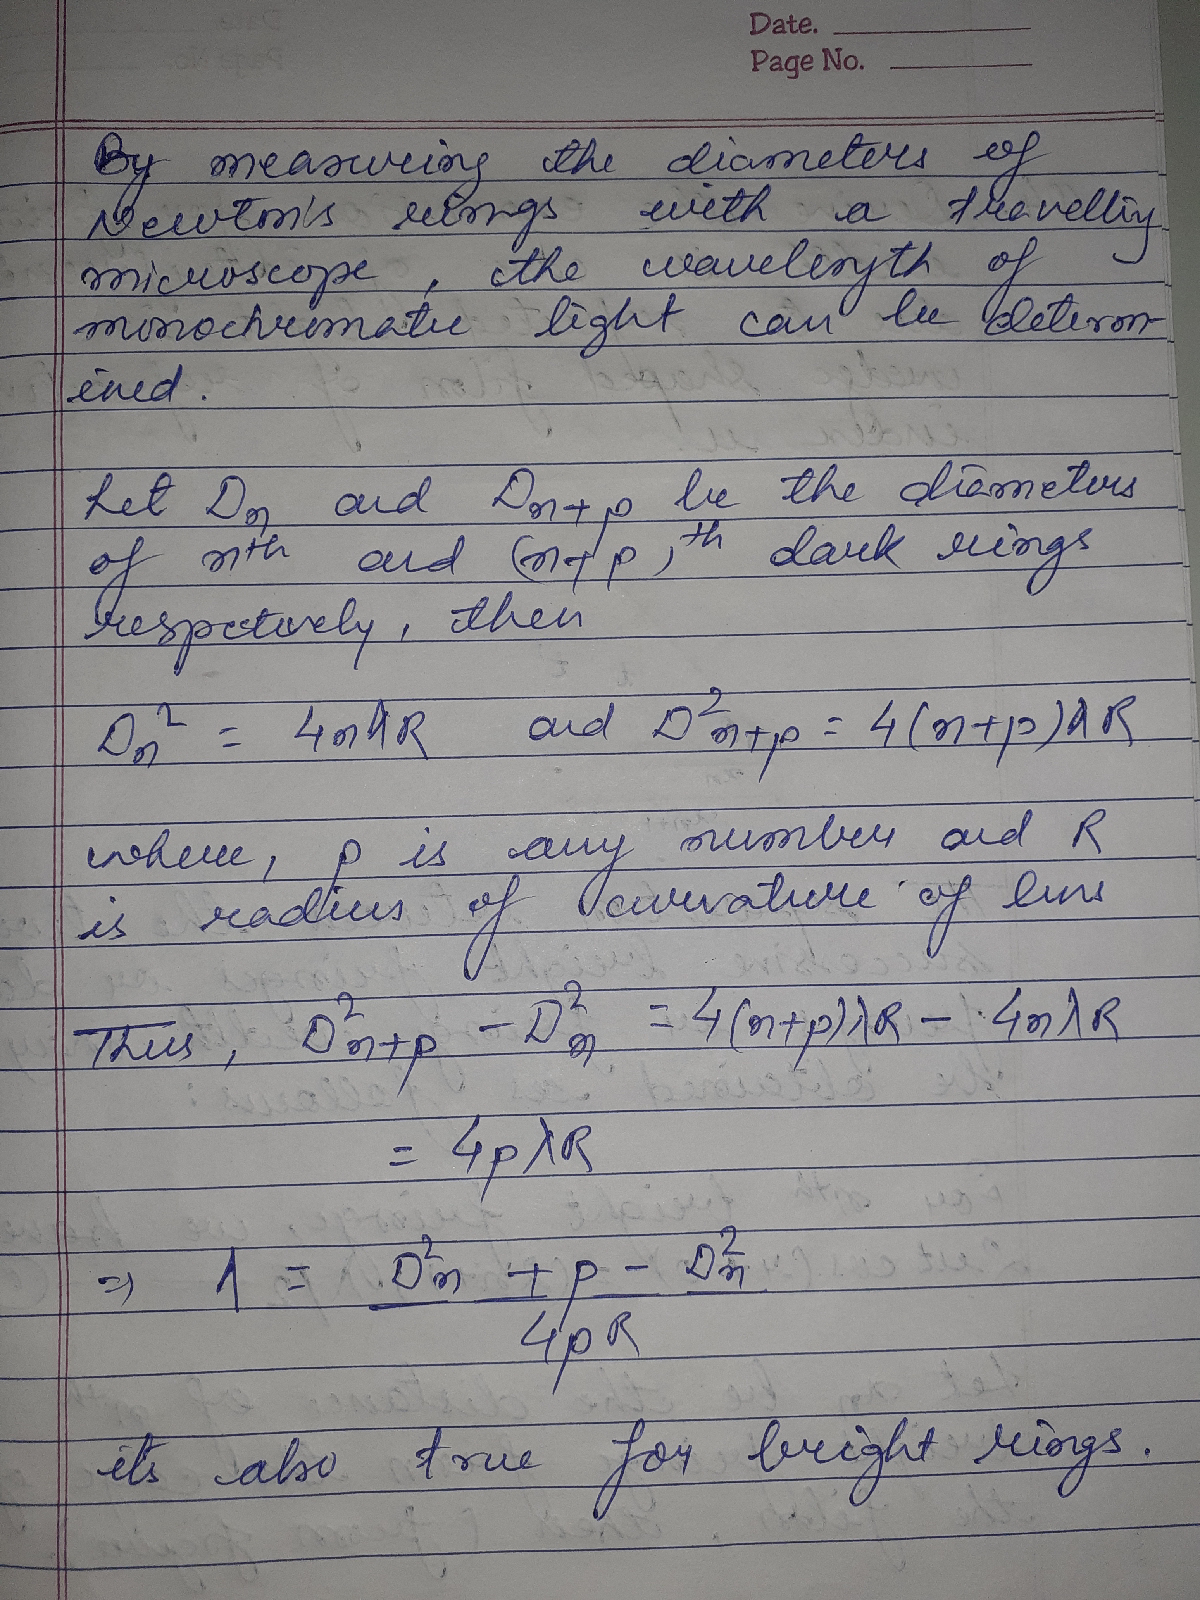 Date.
Page No.
By measuring the diameters of
Newton's rings with a travelling
microscope, the wavelength of
monochromatic light can be determ-
ined.
Let Dn and Dn+p be the diameters
of nth and (n+p)th dark rings
respctively, then
Dn² = 4nλR and D²n+p = 4(n+p)λR
where, p is any number and R
is radius of curvature of lens
Thus, D²n+p - D²n = 4(n+p)λR - 4nλR
= 4pλR
⇒ λ = D²n + p - D²n
4pR
its also true for bright rings.